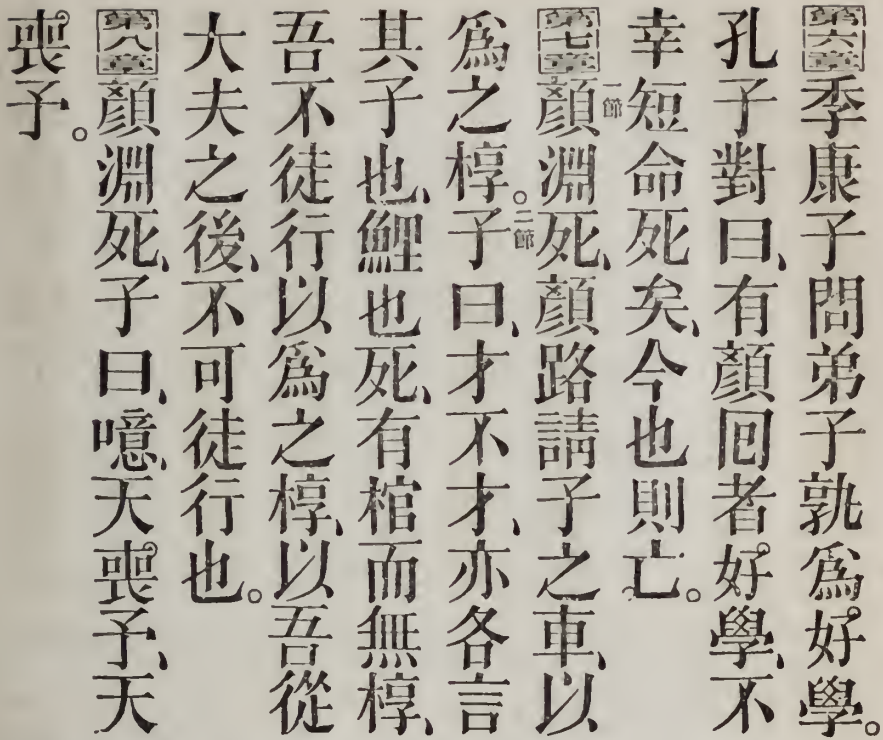 第六章季康子問弟子孰爲好學。
孔子對曰、有顏囘者好學、不
幸短命死矣、今也則亡。
第七章一節顏淵死、顏路請子之車、以
爲之椁。二節子曰、才不才、亦各言
其子也、鯉也死、有棺而無椁、
吾不徒行以爲之椁、以吾從
大夫之後、不可徒行也。
第八章顏淵死、子曰、噫、天喪予、天
喪予。